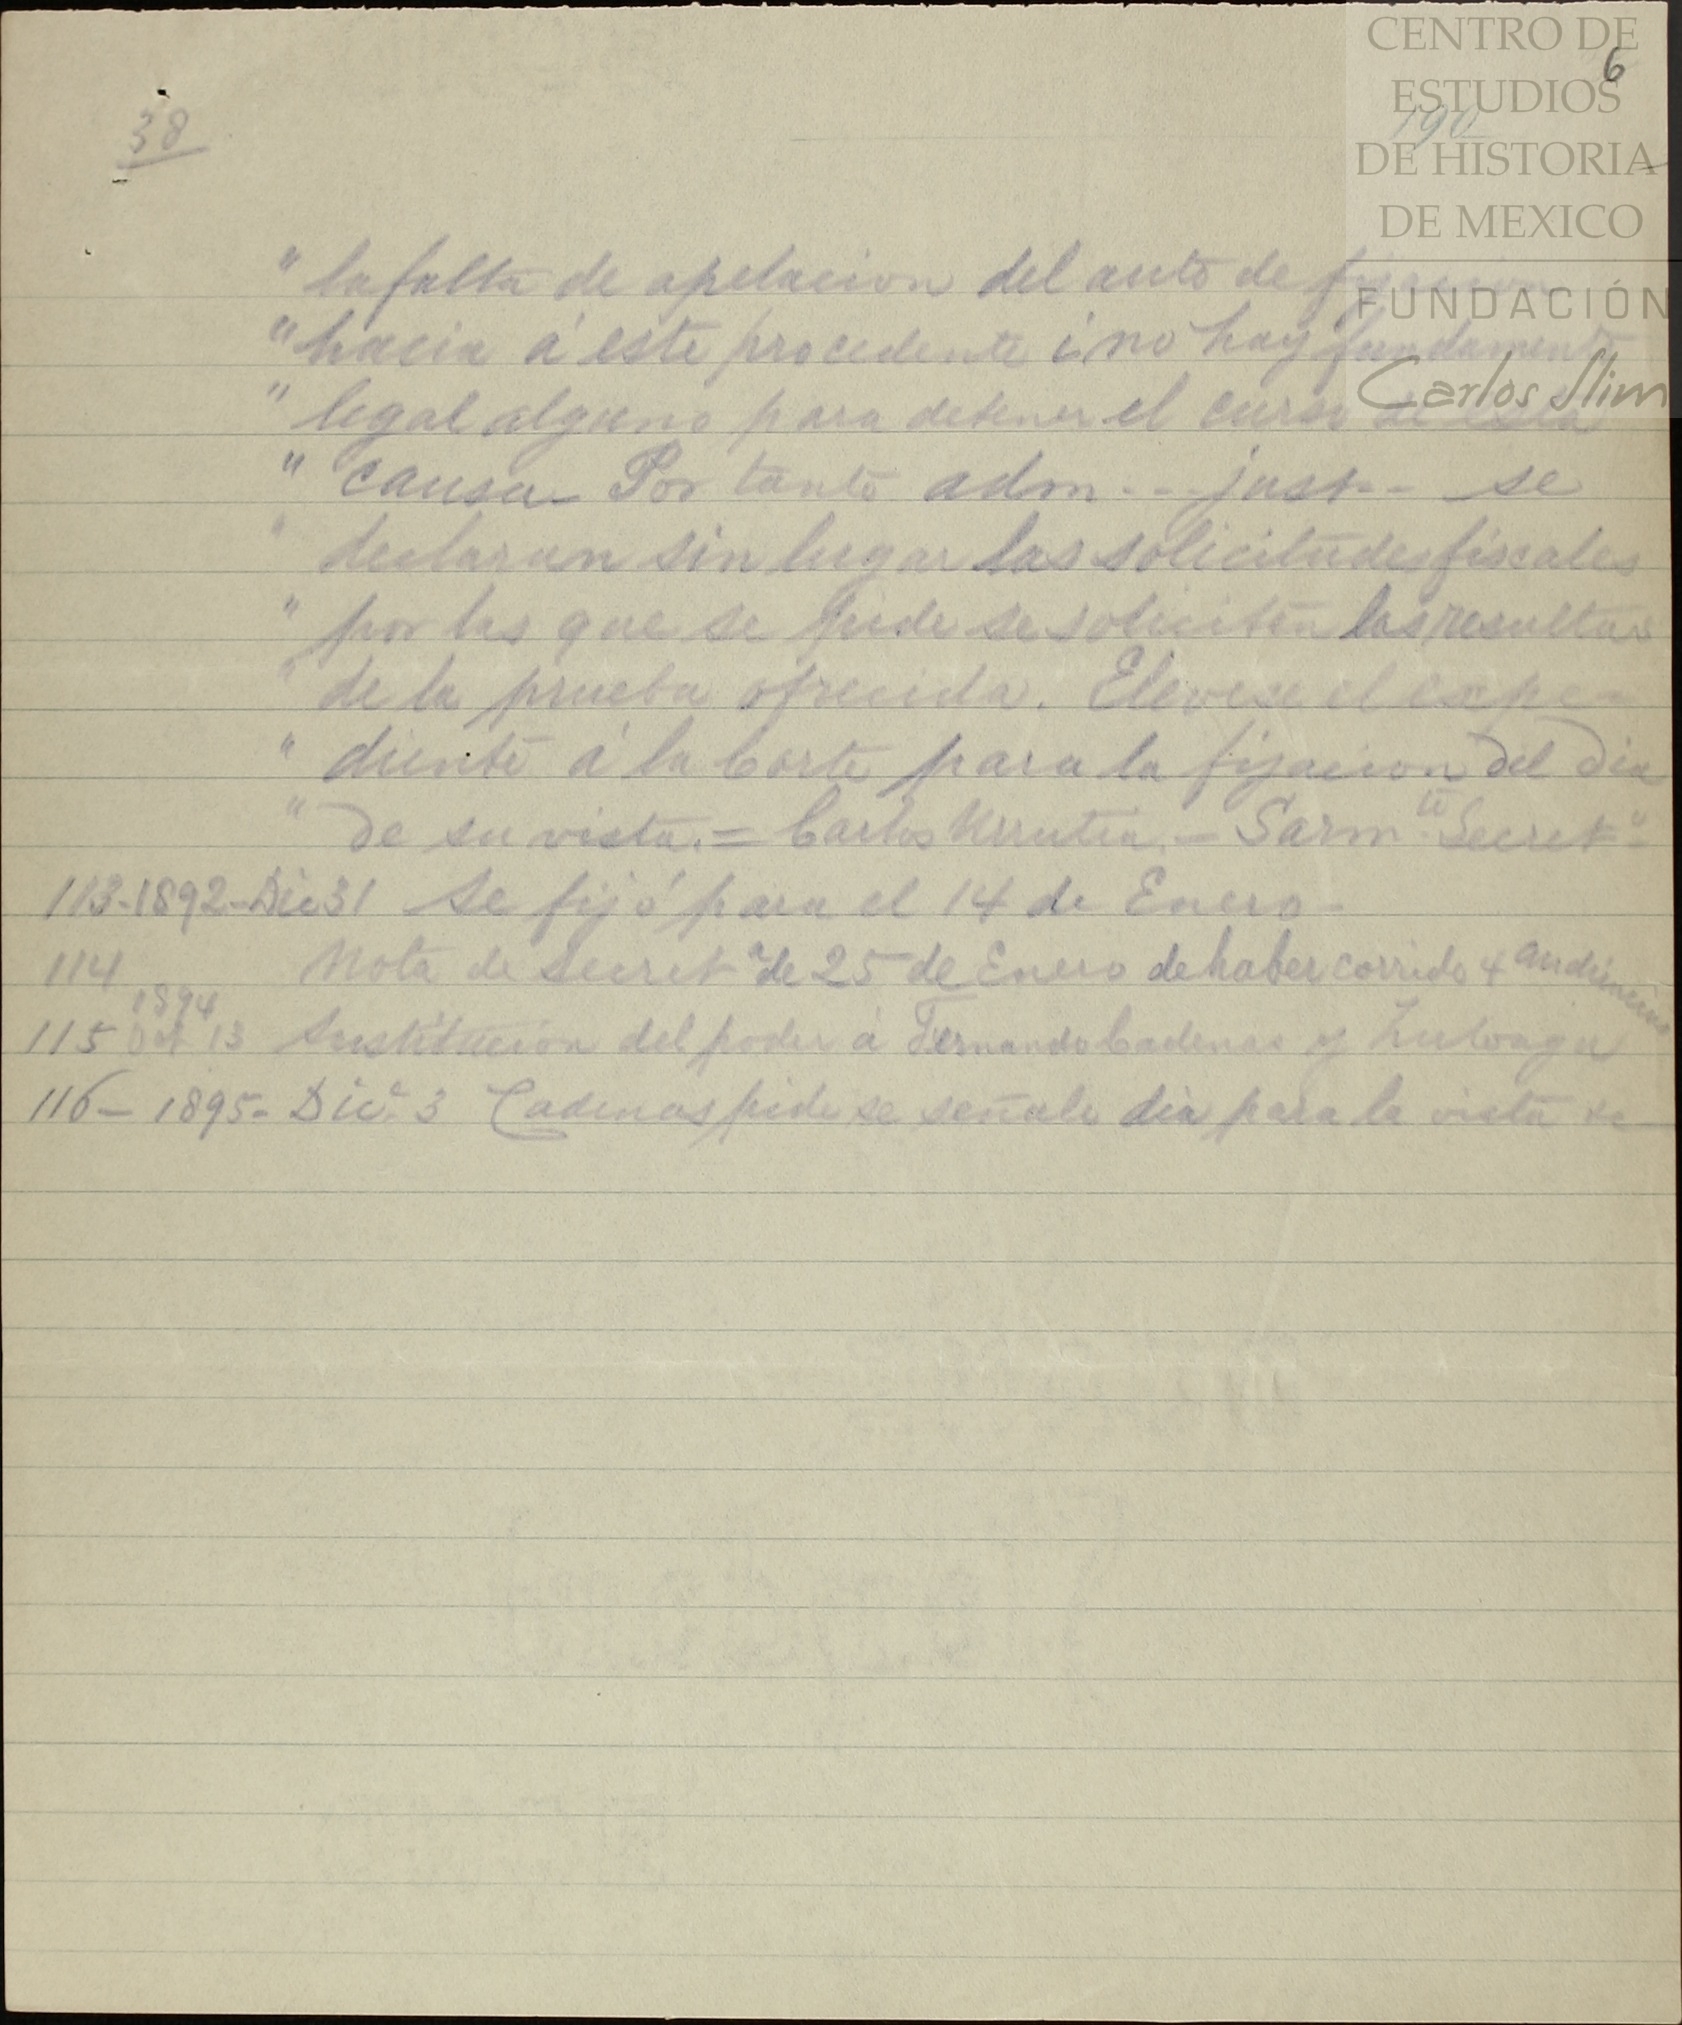 CENTRO DE
ESTUDIOS
DE HISTORIA
DE MEXICO
FUNDACIÓN
Carlos Slim
6
190
38
" la falta de apelacion del auto de fijacion
" hacia á este procedente i no hay fundamento
" legal alguno para detener el curso de esta
" causa. Por tanto adm - - - just - - se
" declaran sin lugar las solicitudes fiscales
" por las que se pide se soliciten las resultas
" de la prueba ofrecida. Elevese el expe-
" diente á la Corte para la fijacion del dia
" de su vista. = Carlos Urrutia. - Sarm.to Secret."
113-1892-Dic 31 Se fijó para el 14 de Enero-
114 Nota de Secret.a de 25 de Enero de haber corrido 4 audiencias
115 1894 Oct 13 Sustitucion del poder á Fernando Cadenas y Zuloaga
116- 1895- Dic.e 3 Cadenas pide se señale dia para la vista